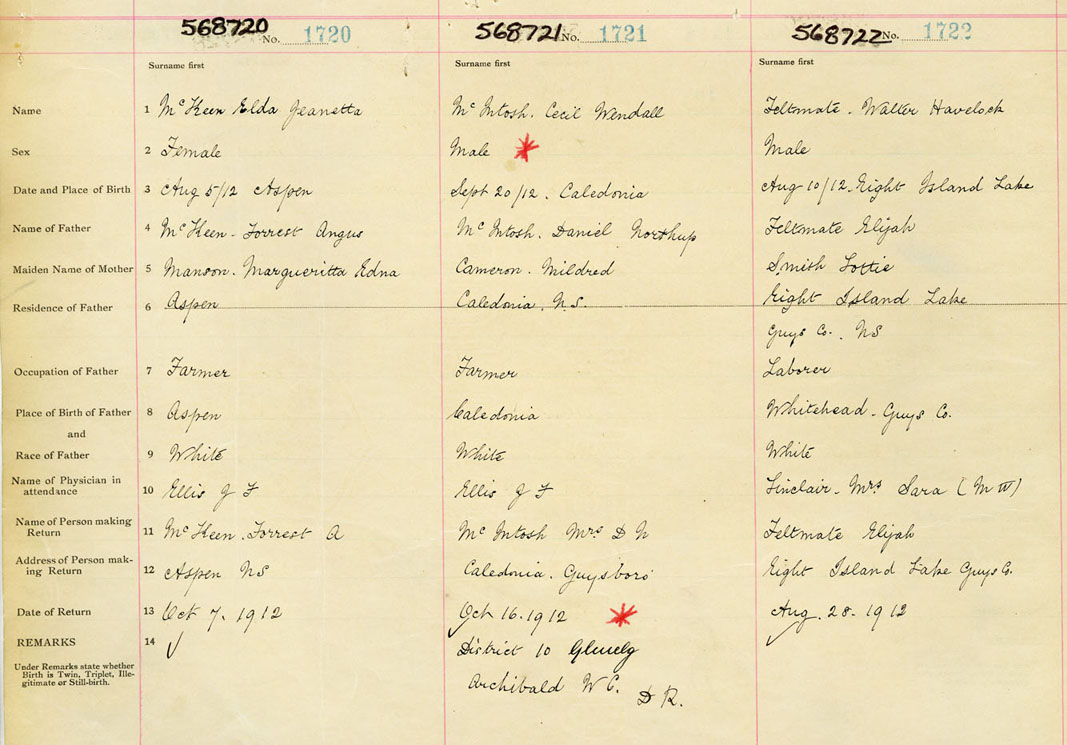 568720 No. 1720 568721 No. 1721 568722 No. 1722
Surname first Surname first Surname first
Name 1 McKeen Elda Jeanetta McIntosh. Cecil Wendall Feltmate - Walter Havelock
Sex 2 Female Male Male
Date and Place of Birth 3 Aug 5/12 Aspen Sept 20/12. Caledonia Aug 10/12 - Eight Island Lake
Name of Father 4 McKeen - Forrest Angus McIntosh. Daniel Northup Feltmate Elijah
Maiden Name of Mother 5 Manson. Margueritta Edna Cameron - Mildred Smith Lottie
Residence of Father 6 Aspen Caledonia. N.S. Eight Island Lake
Guys Co. NS
Occupation of Father 7 Farmer Farmer Laborer
Place of Birth of Father 8 Aspen Caledonia Whitehead - Guys Co.
and
Race of Father 9 White White White
Name of Physician in
attendance 10 Ellis J F Ellis J F Sinclair - Mrs Sara (M W)
Name of Person making
Return 11 McKeen. Forrest A McIntosh Mrs D N Feltmate Elijah
Address of Person mak-
ing Return 12 Aspen NS Caledonia. Guysboro Eight Island Lake Guys Co.
Date of Return 13 Oct 7. 1912 Oct 16. 1912 Aug. 28. 1912
REMARKS 14 District 10 Glenelg
Under Remarks state whether
Birth is Twin, Triplet, Ille-
gitimate or Still-birth.
Archibald W C. D R.